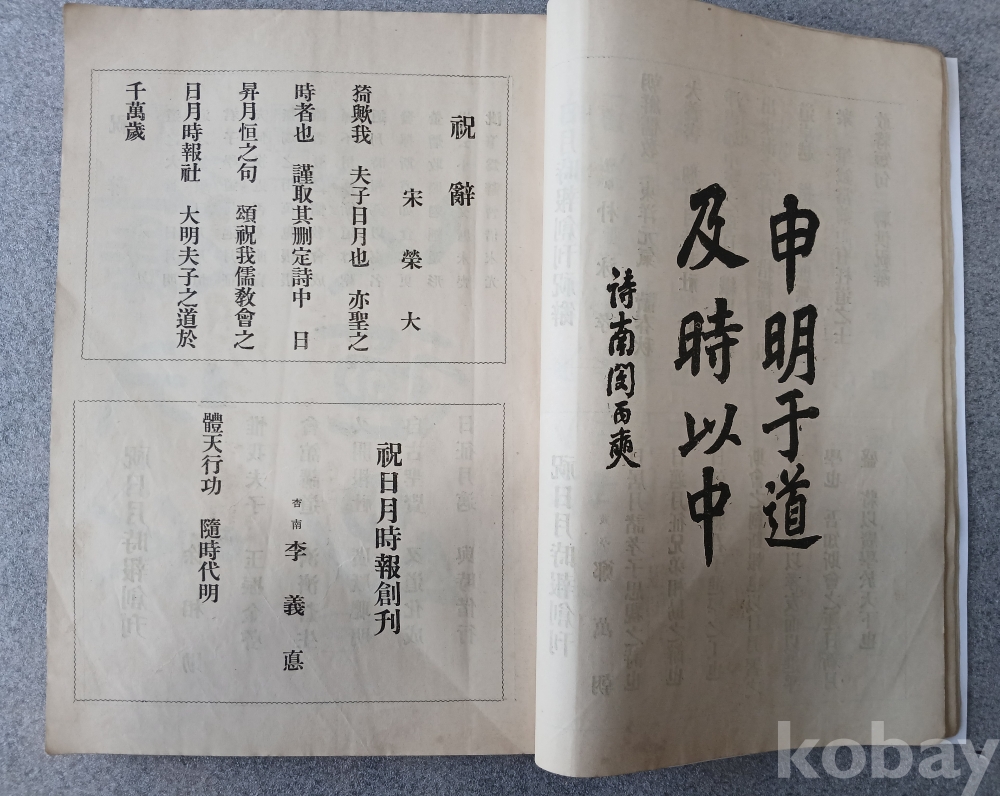 申明于道
及時以中
詩南閔丙奭
祝辭
宋榮大
猗歟我 夫子日月也 亦聖之
時者也 謹取其删定詩中 日
昇月恒之句 頌祝我儒敎會之
日月時報社 大明夫子之道於
千萬歲
祝日月時報創刊
杳南 李義悳
體天行功 隨時代明
kobay